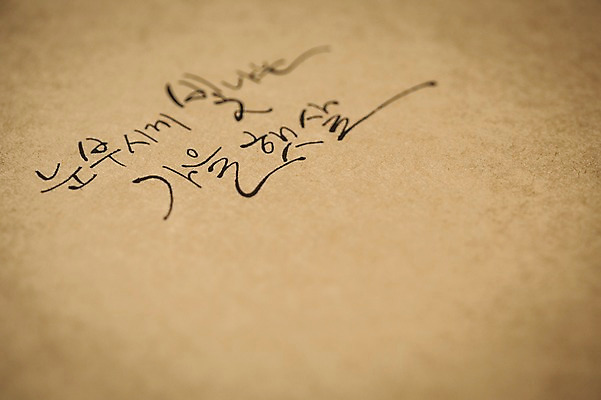 눈부시게 빛나는
가을 햇살